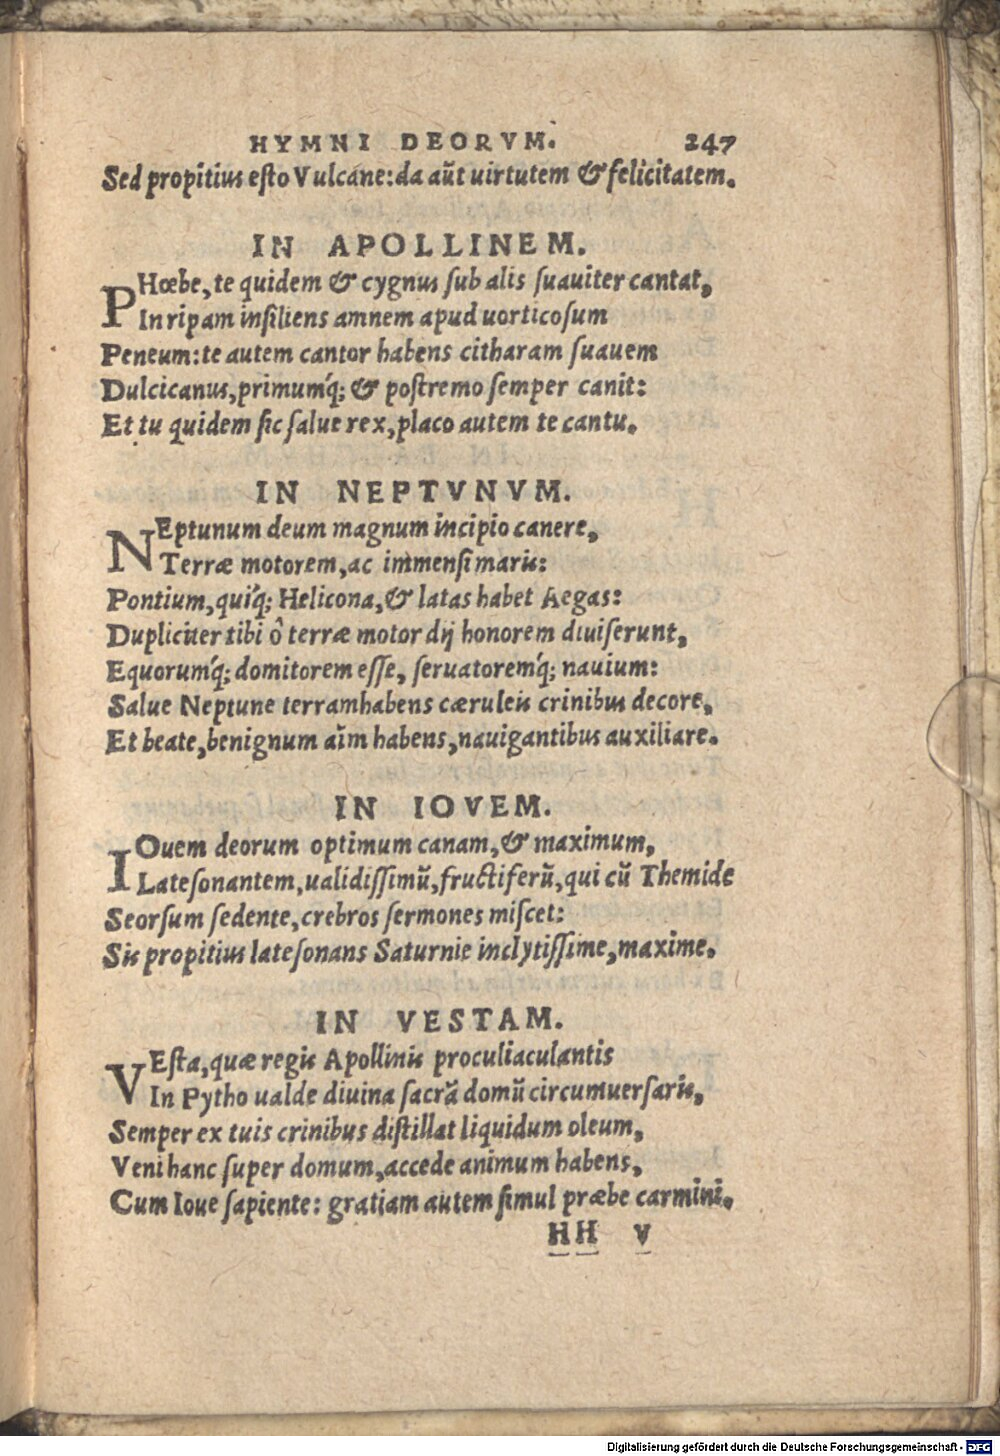 HYMNI DEORVM. 247
Sed propitius esto Vulcane: da aūt uirtutem & felicitatem.
IN APOLLINEM.
PHœbe, te quidem & cygnus sub alis suauiter cantat,
In ripam insiliens amnem apud uorticosum
Peneum: te autem cantor habens citharam suauem
Dulcicanus, primumq́; & postremo semper canit:
Et tu quidem sic salue rex, placo autem te cantu.
IN NEPTVNVM.
NEptunum deum magnum incipio canere,
Terræ motorem, ac immensi maris:
Pontium, quiq́; Helicona, & latas habet Aegas:
Dupliciter tibi ô terræ motor dij honorem diuiserunt,
Equorumq́; domitorem esse, seruatoremq́; nauium:
Salue Neptune terram habens cæruleis crinibus decore,
Et beate, benignum aīm habens, nauigantibus auxiliare.
IN IOVEM.
IOuem deorum optimum canam, & maximum,
Latesonantem, ualidissimū, fructiferū, qui cū Themide
Seorsum sedente, crebros sermones miscet:
Sis propitius latesonans Saturnie inclytissime, maxime.
IN VESTAM.
VEsta, quæ regis Apollinis proculiaculantis
In Pytho ualde diuina sacrā domū circumuersaris,
Semper ex tuis crinibus distillat liquidum oleum,
Veni hanc super domum, accede animum habens,
Cum Ioue sapiente: gratiam autem simul præbe carmini.
HH V
Digitalisierung gefördert durch die Deutsche Forschungsgemeinschaft - DFG